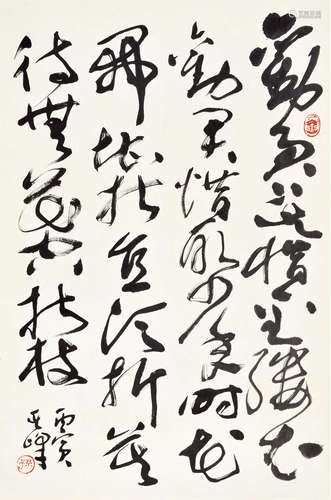 勸君莫惜金縷衣
勸君惜取少年時花
開堪折直須折莫
待無花空折枝
丙寅
其峰